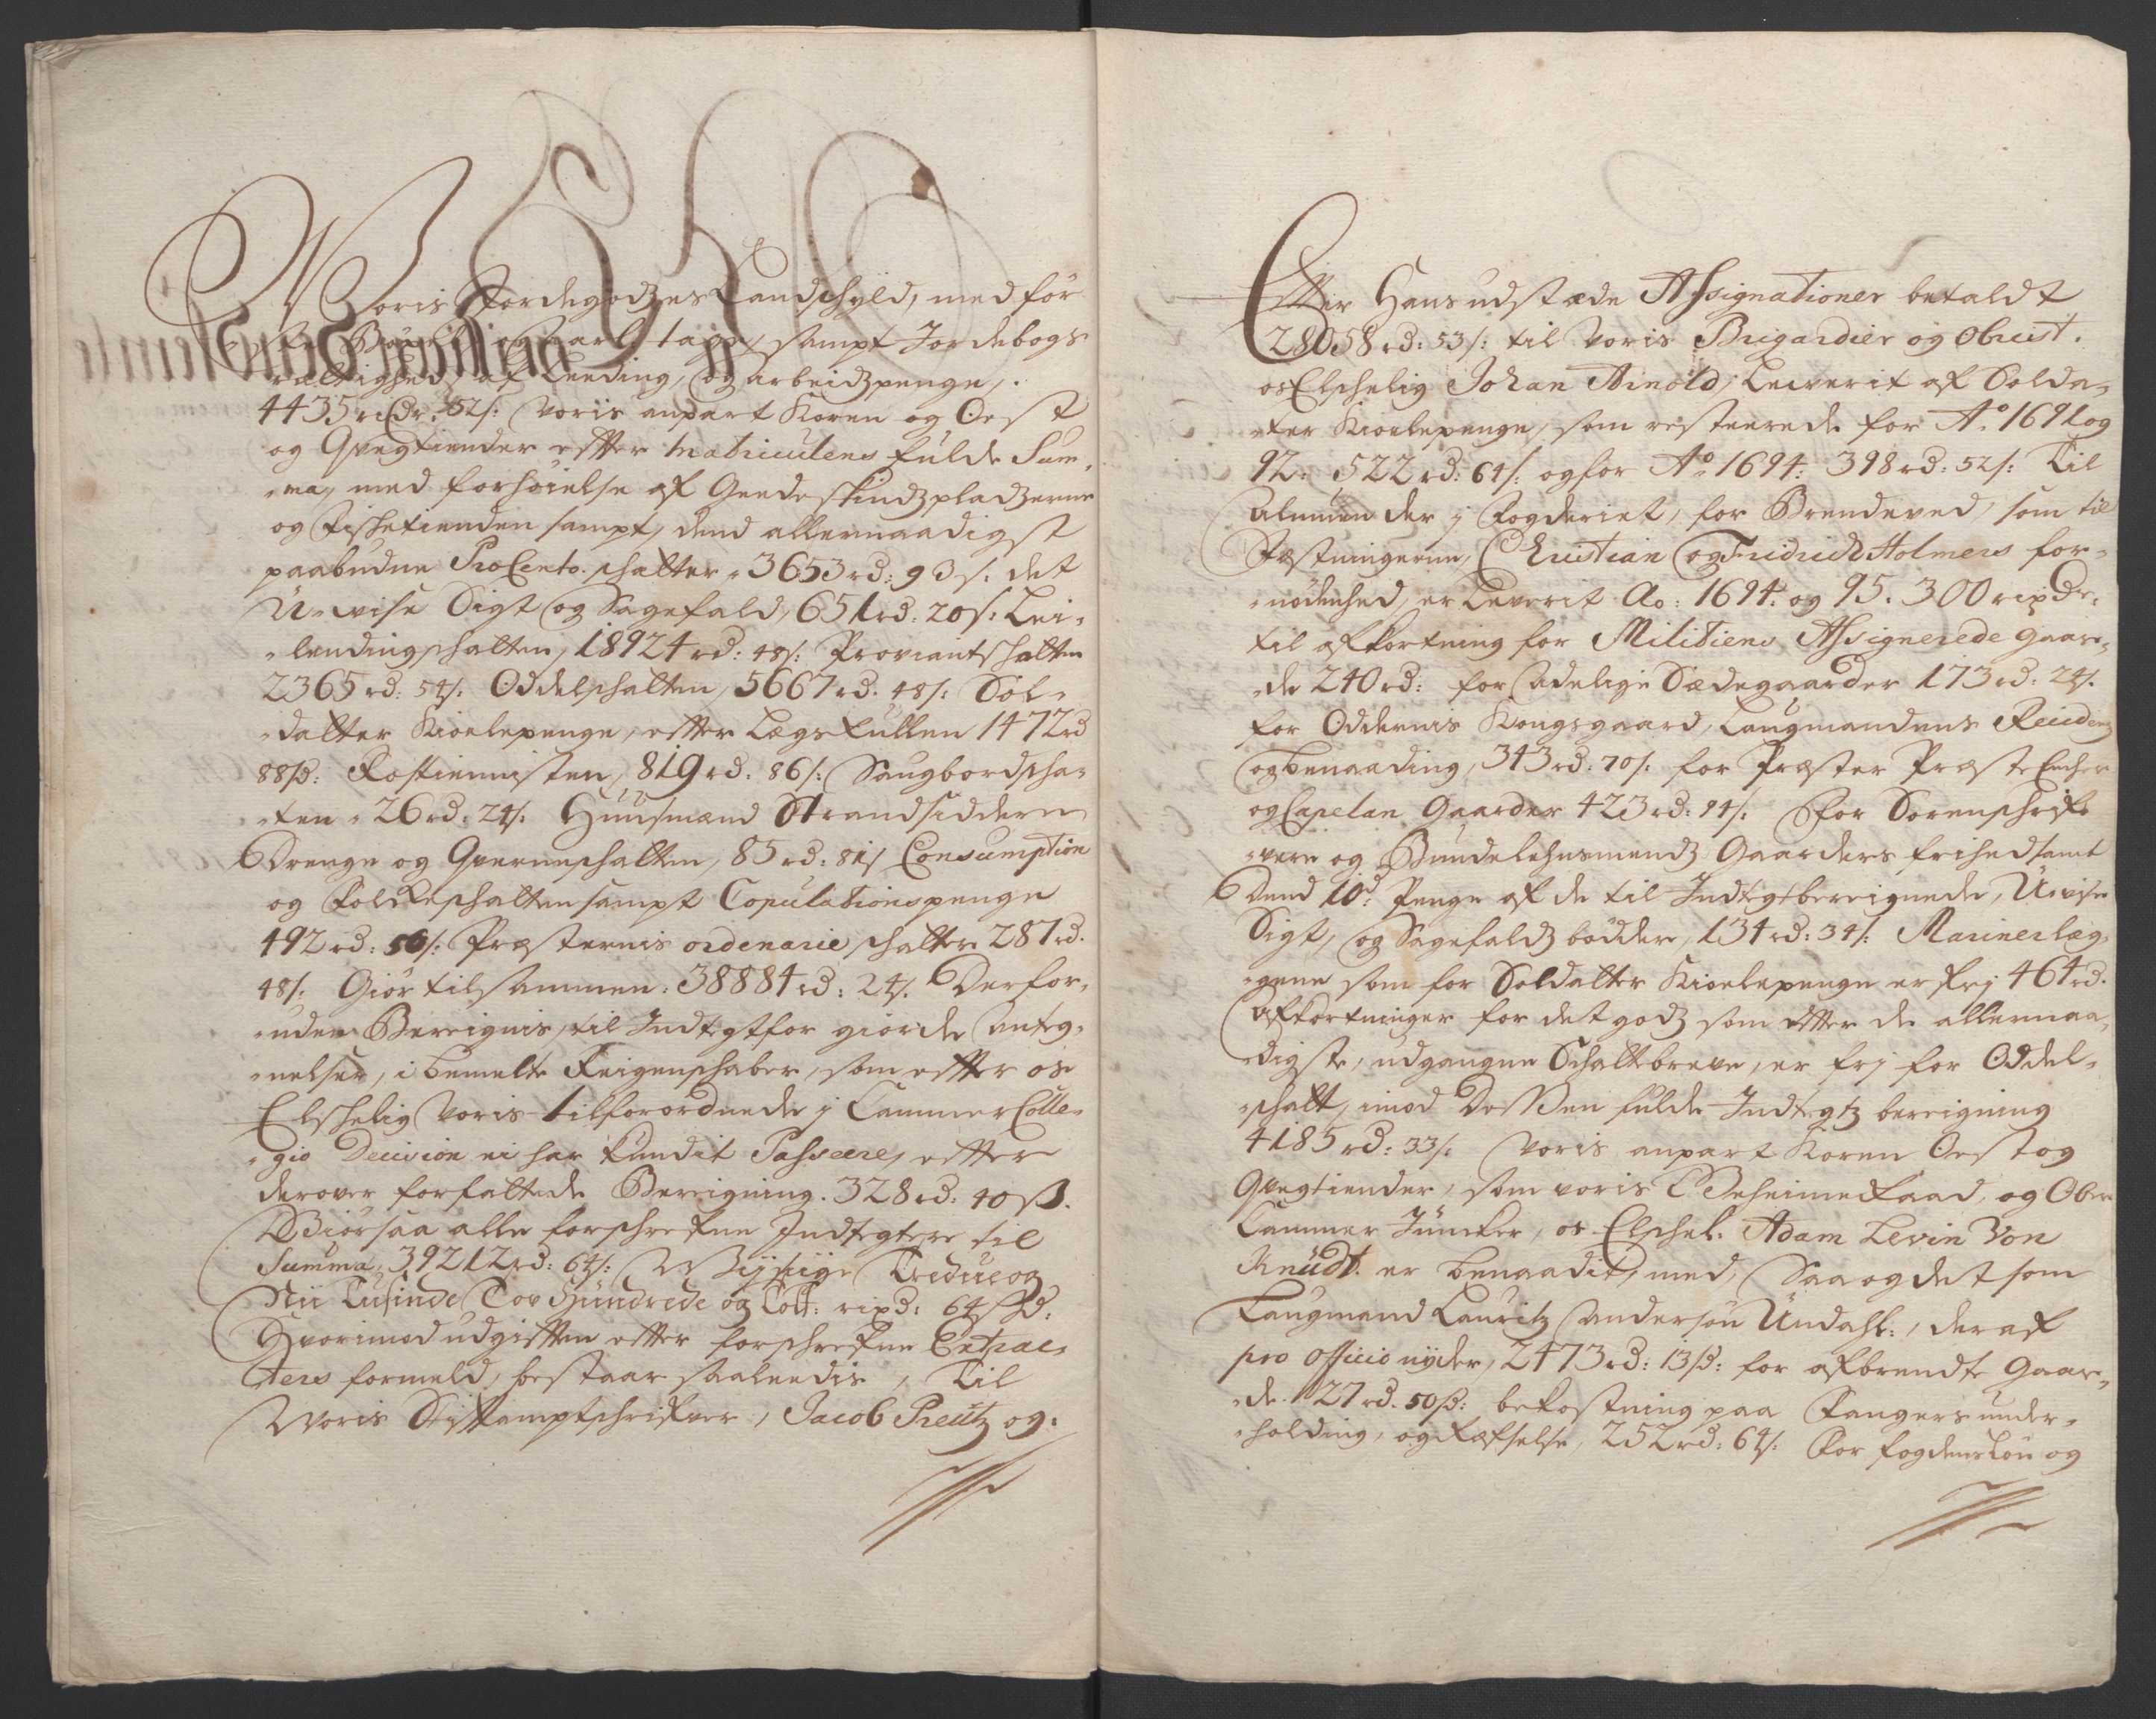 Voris Jordegodzes Landschyld, med før
ste Bøxel og aarl: tage, sampt Jordebogs
rettighed, af Leeding, og arbeidzpenge,
4435 rdr: 52 s: Voris anpart Koren og Oest
og Qvegtiender efter Matriculens fulde Sum-
ma, med forhøielse af Geedeskindzpladzerne
og Fischetienden sampt, dend allernaadigst
paabudne ProCento schatter 3653 rd: 93 s: det
U-wise Sigt og Sagefald, 651 rd: 20 s: Lei-
lendingschatten, 18924 rd: 48 s: Proviantschatten
2365 rd: 54 s: Oddelschatten, 5667 rd: 48 s: Sol-
datter Kiolepenge, efter Lægs Rullen 1472 rd
88 s: Rostienisten, 819 rd: 86 s: Saugbordscha-
ten 26 rd: 24 s: Huusmænd Strandsiddere
Drenge og Qverneschatten, 85 rd: 81 s Consumption
og Folckeschatten sampt Copulationspenge
492 rd: 56 s: Præsternis ordenarie schatter 287 rd.
48 s: Giør tilsammen: 38884 rd: 24 s. Derfor-
uden Bereignis, til Indtegt for giorde Anteg-
nelser, i bemelte Reigenschaber, som efter os
Elschelig Voris tilforordnede j Cammer Colle-
gio Decision ei har kundit Passeere, efter
derover forfattede Bereigning. 328 rd: 40 ß.
Giør saa alle forschrefne Indtegter til
Summa, 39212 rd: 64 s: Siger Tredive og
Nii Tusinde Tov Hundrede og Tolf: rixd: 64 sk:
Hvorimod udgifften efter forschrefne Extrac-
ters formeld, bestaar saaleedis, Til
Voris Stiftamptschrifver, Jacob Preutz og
Efter Hans udstæde Assignationer betaldt
28058 rd: 53 s: til Voris Brigardier og Obrist.
os Elschelig Johan Arnold, Leverit af Solda-
ter Kiolepenge, som resteerede for Ao 1691 og
92: 522 rd: 64 s: og for Ao 1694: 398 rd: 52 s: Til
Almuen der j Fogderiet, for Brendeved, som til
Festningerne, Christian og Fridrich Holmers for-
nødenhed, er Leverit Ao: 1694: og 95. 300 rixdr.
til afkortning for Militiens Assignerede Gaar-
de 240 rd: for Adelige Sædegaarder 173 rd: 24 s.
for Oddernis Kongsgaard, Laugmandens Residenz
og benaading, 343 rd: 70 s: for Præster Præste Encher
og Capelan Gaarder 423 rd: 94 s: For Sorenschrif-
vere og Bundelehnsmendz Gaarders frihed samt
Dend 10d Penge af de til Indtegt bereignede, Uvise
Sigt, og Sagefaldz bødder, 134 rd: 34 s: Marinerlæg-
gene som for Soldatter Kiolepenge er frj 464 rd.
Afkortninger for det godz som efter de allernaa-
digste, udgangne Schattebreve, er frj for Oddel-
schatt, imod Dessen fulde Indtegtz bereigning
4185 rd: 33 s: Voris anpart Koren Oest og
Qvegtiender, som voris Geheimeraad, og Ober
Cammer Juncker, os Elschel. Adam Levin Von
Knudt. er benaadit, med, Saa og det som
Laugmand Lauritz Andersøn Undahl:, deraf
pro officio nyder, 2473 rd: 13 s: for afbrendte Gaar-
de. 127 rd. 50 s: bekostning paa Fangers under-
holding, og Refselse, 252 rd: 64 s: For fogdens Løn og